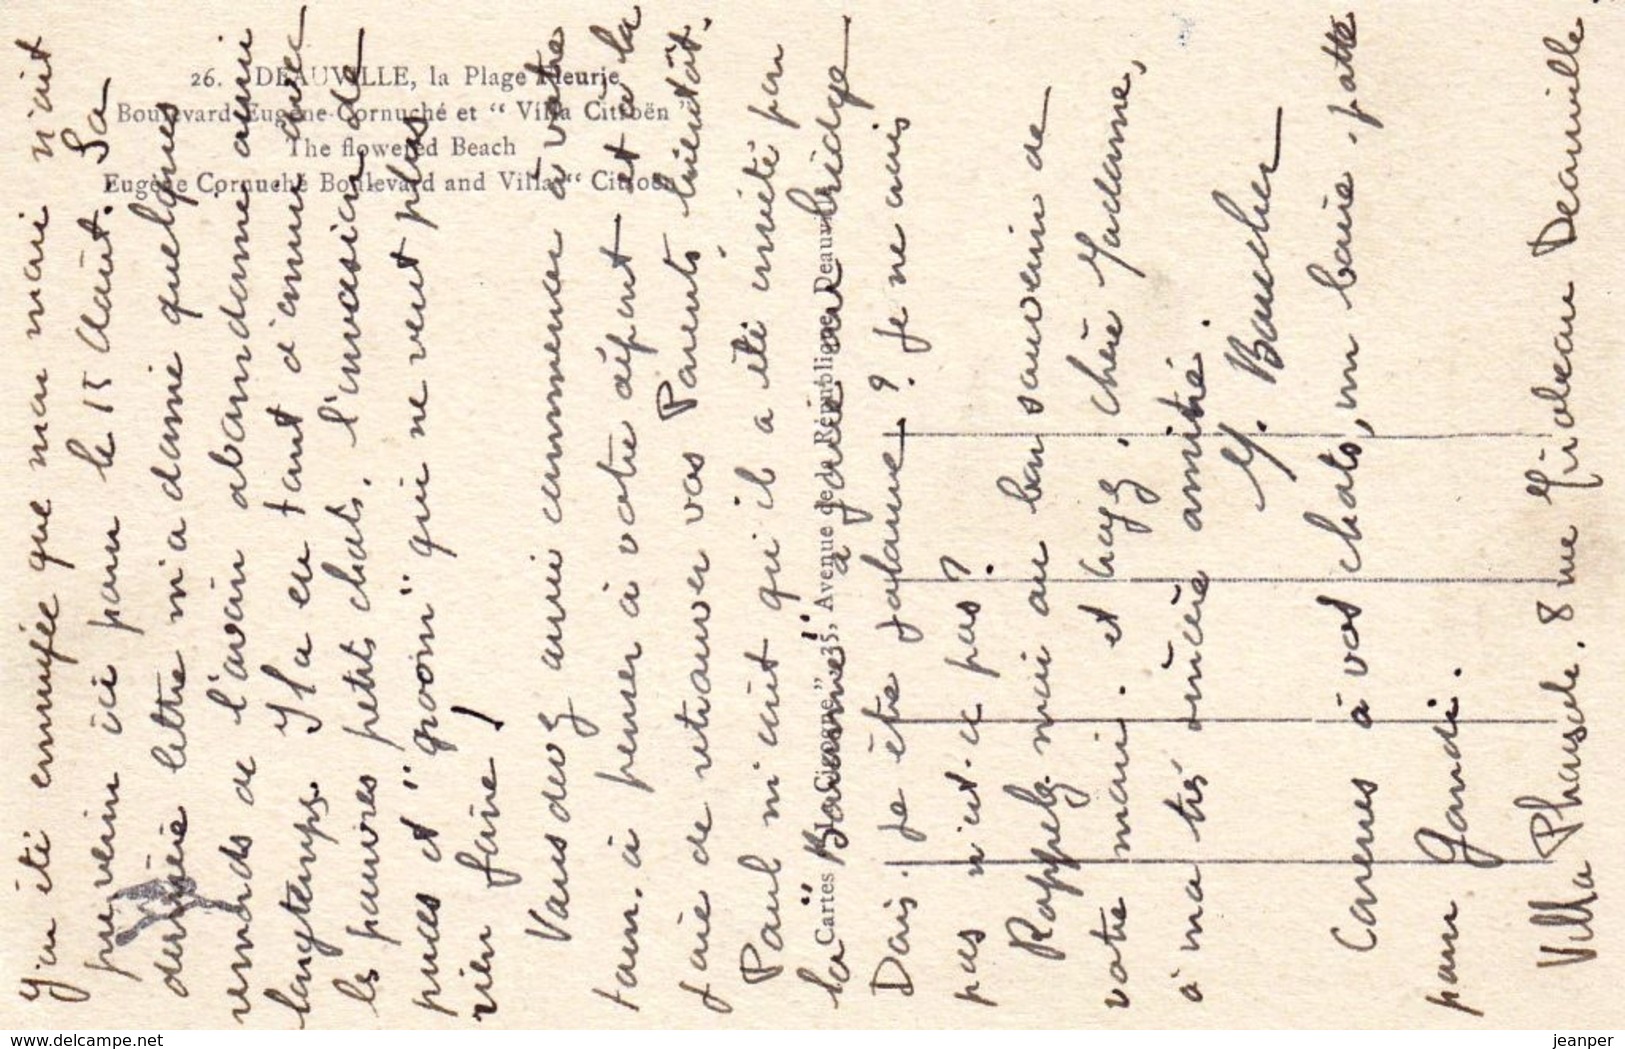 26. DEAUVILLE, la Plage Fleurie
Boulevard Eugène-Cornuché et “ Villa Citroën ”
The flowered Beach
Eugène Cornuché Boulevard and Villa “ Citroën
Cartes "La Cigogne" 35, Avenue de la République, Deauville
J'ai été ennuyée que mon mari n'ait
pu venir ici pour le 15 Août. Sa
dernière lettre m'a donné quelques
remords de l'avoir abandonné aussi
longtemps. Il a eu tant d'ennui avec
les pauvres petits chats, l'invasion de
puces et "groom" qui ne veut plus
rien faire !
Vous devez aussi commencer à votre
tour à penser à votre départ et à la
joie de retrouver vos Parents bientôt.
Paul m'écrit qu'il a été invité par
la "Baronne" à jouer au bridge
Dois-je être jalouse ? Je ne suis
pas n'est-ce pas ?
Rappelez-moi au bon souvenir de
votre mari. et croyez, chère Madame,
à ma très sincère amitié.
Y. Boucher
Caresses à vos chats, un baisé patte
pour Gandi.
Villa Phausole. 8 rue Mirabeau Deauville
www.delcampe.net
jeanper